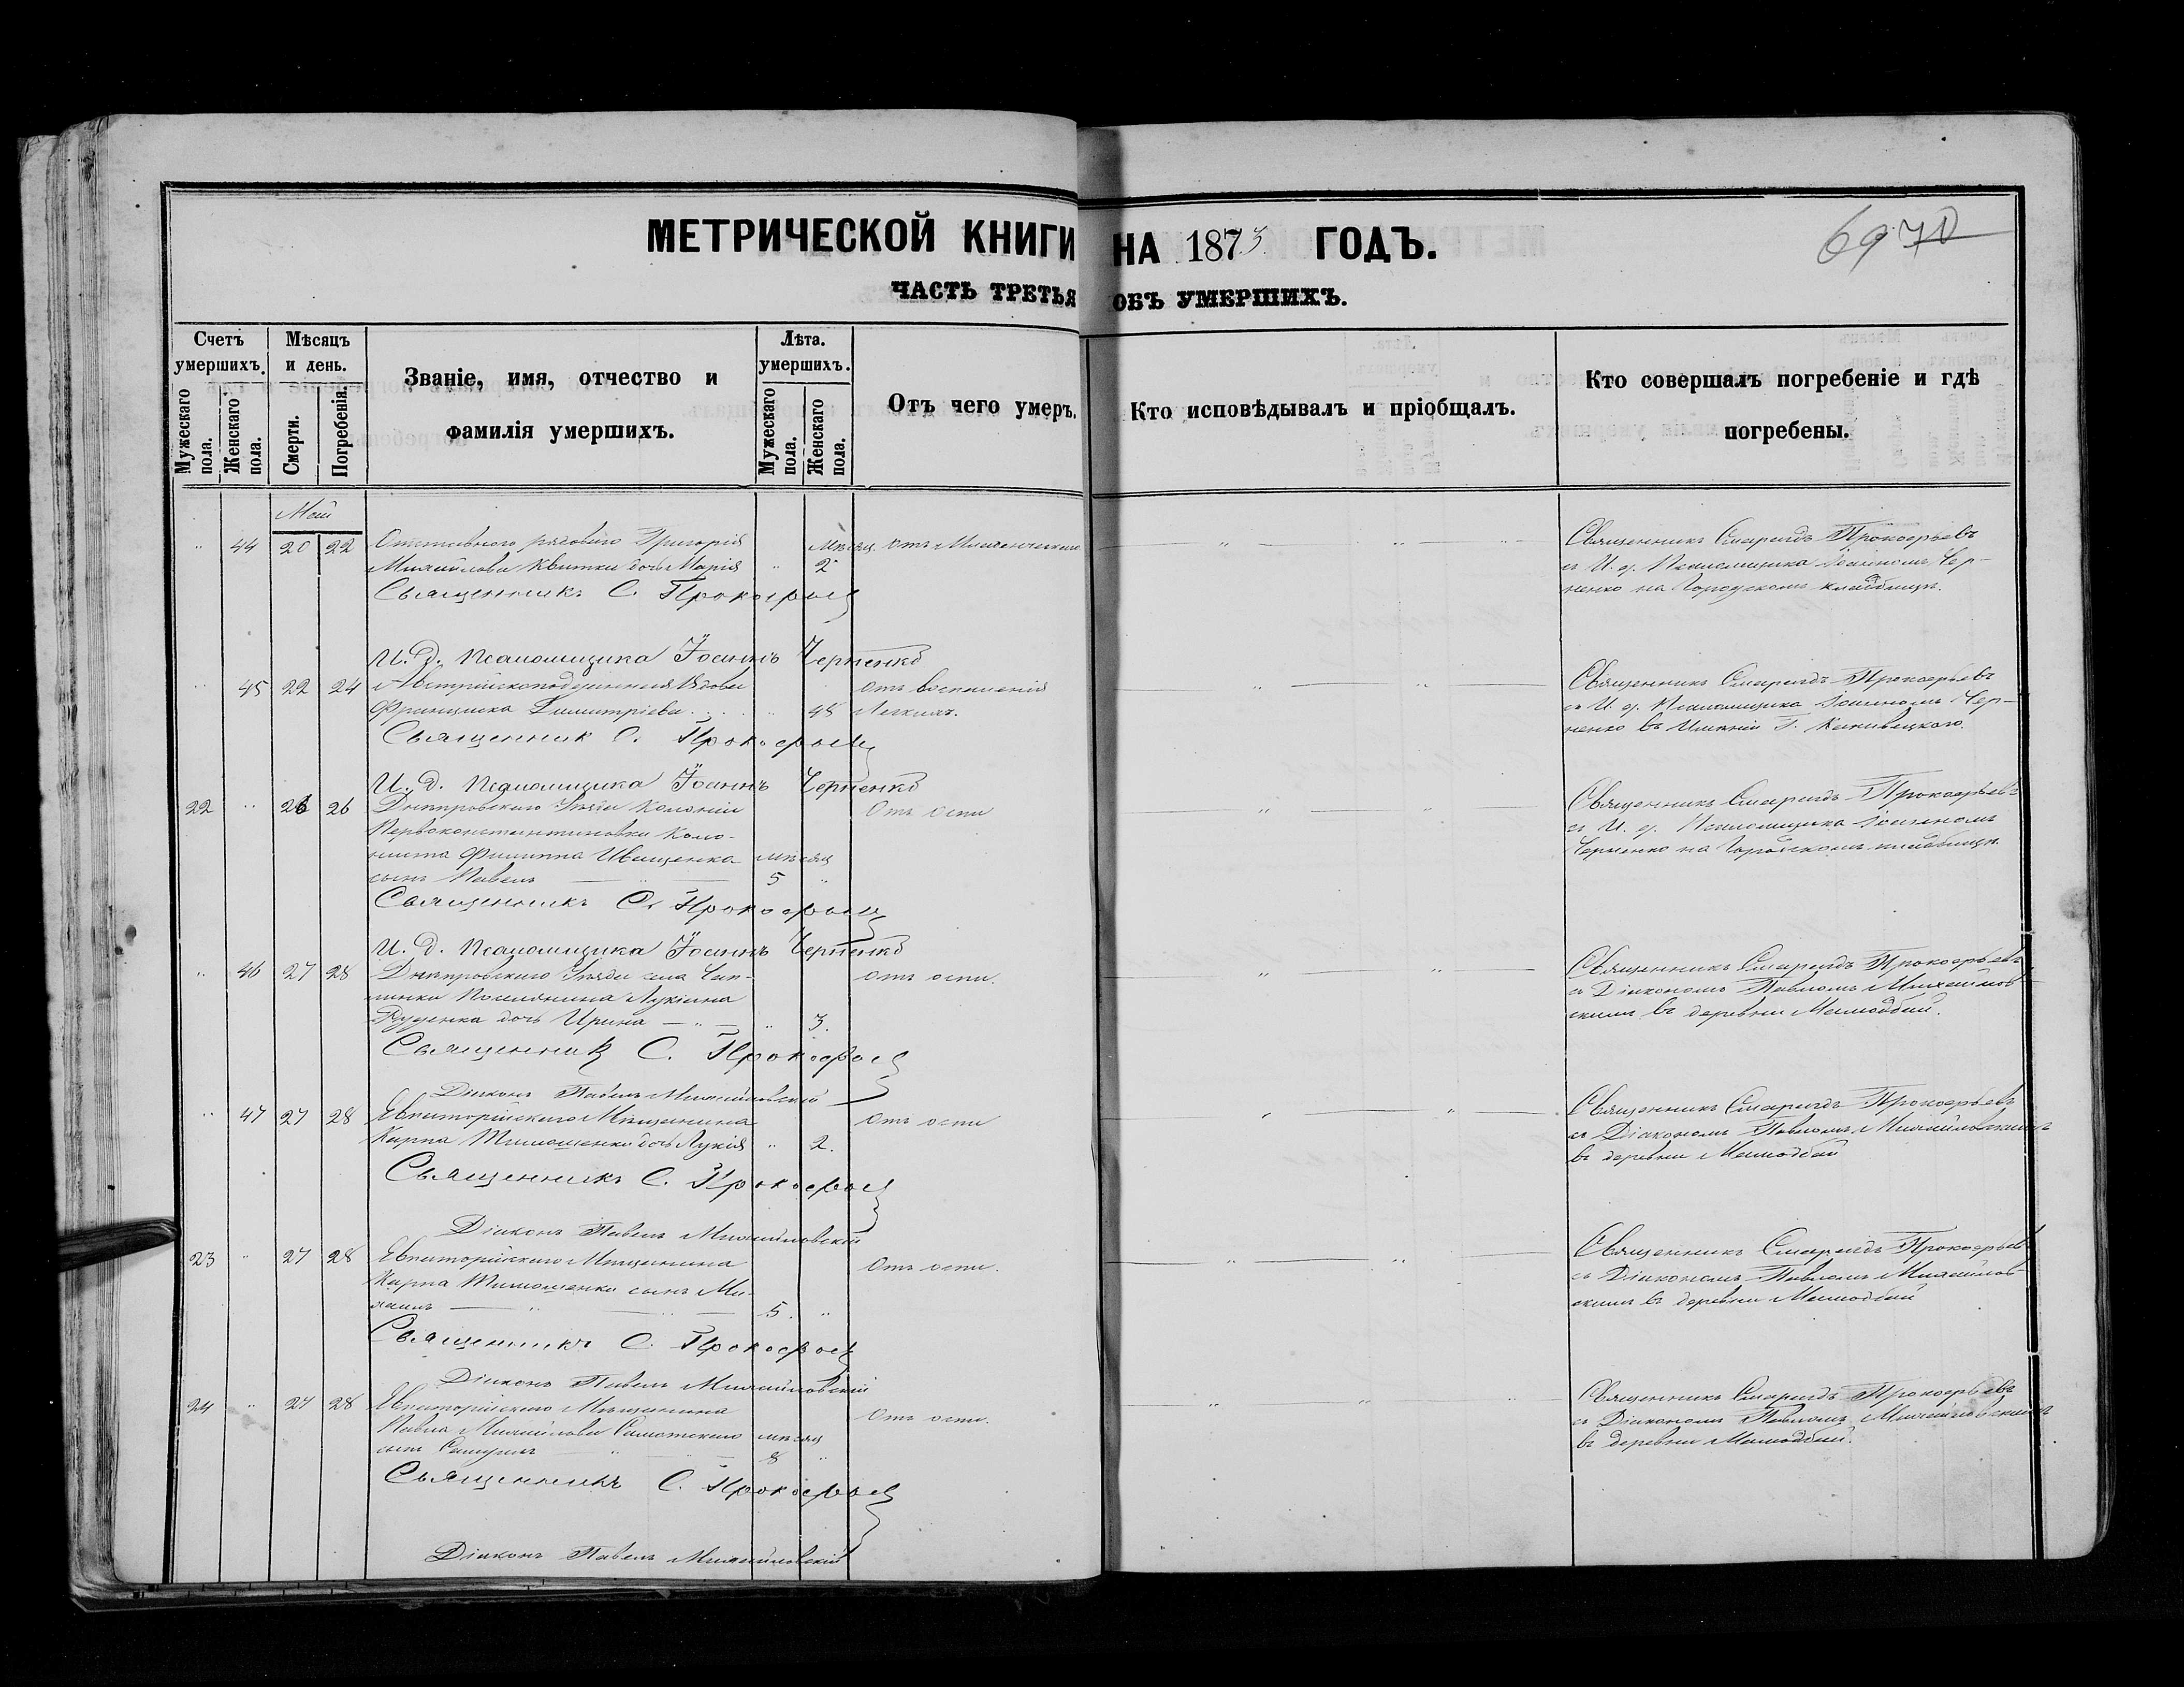 МЕТРИЧЕСКОЙ КНИГИ НА 1873 ГОДЪ.
6970
ЧАСТЬ ТРЕТЬЯ ОБЪ УМЕРШИХЪ.
Счетъ умершихъ.
Мужескаго пола.
Женскаго пола.
Мѣсяцъ и день.
Смерти.
Погребенія.
Званіе, имя, отчество и
фамилія умершихъ.
Лѣта. умершихъ.
Мужескаго пола.
Женскаго пола.
Отъ чего умеръ.
Кто исповѣдывалъ и пріобщалъ.
Кто совершалъ погребеніе и гдѣ
погребены.
Май
44 20 22 Отставнаго рядоваго Григорія
Михайлова Квитки дочь Марія
Мѣсяц. 2
Священникъ Смарагдъ Прокофьевъ
съ И. д. Псаломщика Іоанномъ Чер-
ненко на Городскомъ кладбищѣ.
Священникъ С. Прокофьевъ
И. д. Псаломщика Іоаннъ Черненко
45 22 24 Австрійскоподданная Вдова
Франциска Димитріева 48 Отъ воспаленія
легкихъ.
Священникъ Смарагдъ Прокофьевъ
съ И. д. Псаломщика Іоанномъ Чер-
ненко въ Имѣніи Г.
Священник С. Прокофьевъ
И. д. Псаломщика Іоаннъ Черненко
22 26 26 Днѣпровскаго Уѣзда Колоніи
Первоконстантиновки Коло-
ниста Филиппа Иващенка мѣсяц
сынъ Павелъ 5
Отъ оспы
Священникъ Смарагдъ Прокофьевъ
съ И. д. Псаломщика Іоанномъ
Черненко на Городскомъ кладбищѣ
Священникъ С. Прокофьевъ
И. д. Псаломщика Іоаннъ Черненко
46 27 28 Днѣпровскаго Уѣзда села Чап-
линки Поселянина Лукіана
Руденка дочь Ирина 3.
Отъ оспы.
Священникъ Смарагдъ Прокофьевъ
съ Діакономъ Павломъ Михайлов-
скимъ въ деревни
Священникъ С. Прокофьевъ
Діаконъ Павелъ Михайловскій
47 27 28 Евпаторійскаго Мѣщанина
Карпа Тимошенка дочь Лукія 2.
Отъ оспы
Священникъ Смарагдъ Прокофьевъ
съ Діакономъ Павломъ Михайловскимъ
въ деревни
Священникъ С. Прокофьевъ
Діаконъ Павелъ Михайловскій
23 27 28 Евпаторійскаго Мѣщанина
Карпа Тимошенка сынъ Ми-
хаилъ 5.
Отъ оспы.
Священникъ Смарагдъ Прокофьевъ
съ Діакономъ Павломъ Михайлов-
скимъ въ деревни
Священникъ С. Прокофьевъ
Діаконъ Павелъ Михайловскій
24 27 28 Евпаторійскаго Мѣщанина
Павла Михайлова мѣсяц
сынъ 8
Отъ оспы.
Священникъ Смарагдъ Прокофьевъ
съ Діакономъ Павломъ Михайловскимъ
въ деревни
Священникъ С. Прокофьевъ
Діаконъ Павелъ Михайловскій